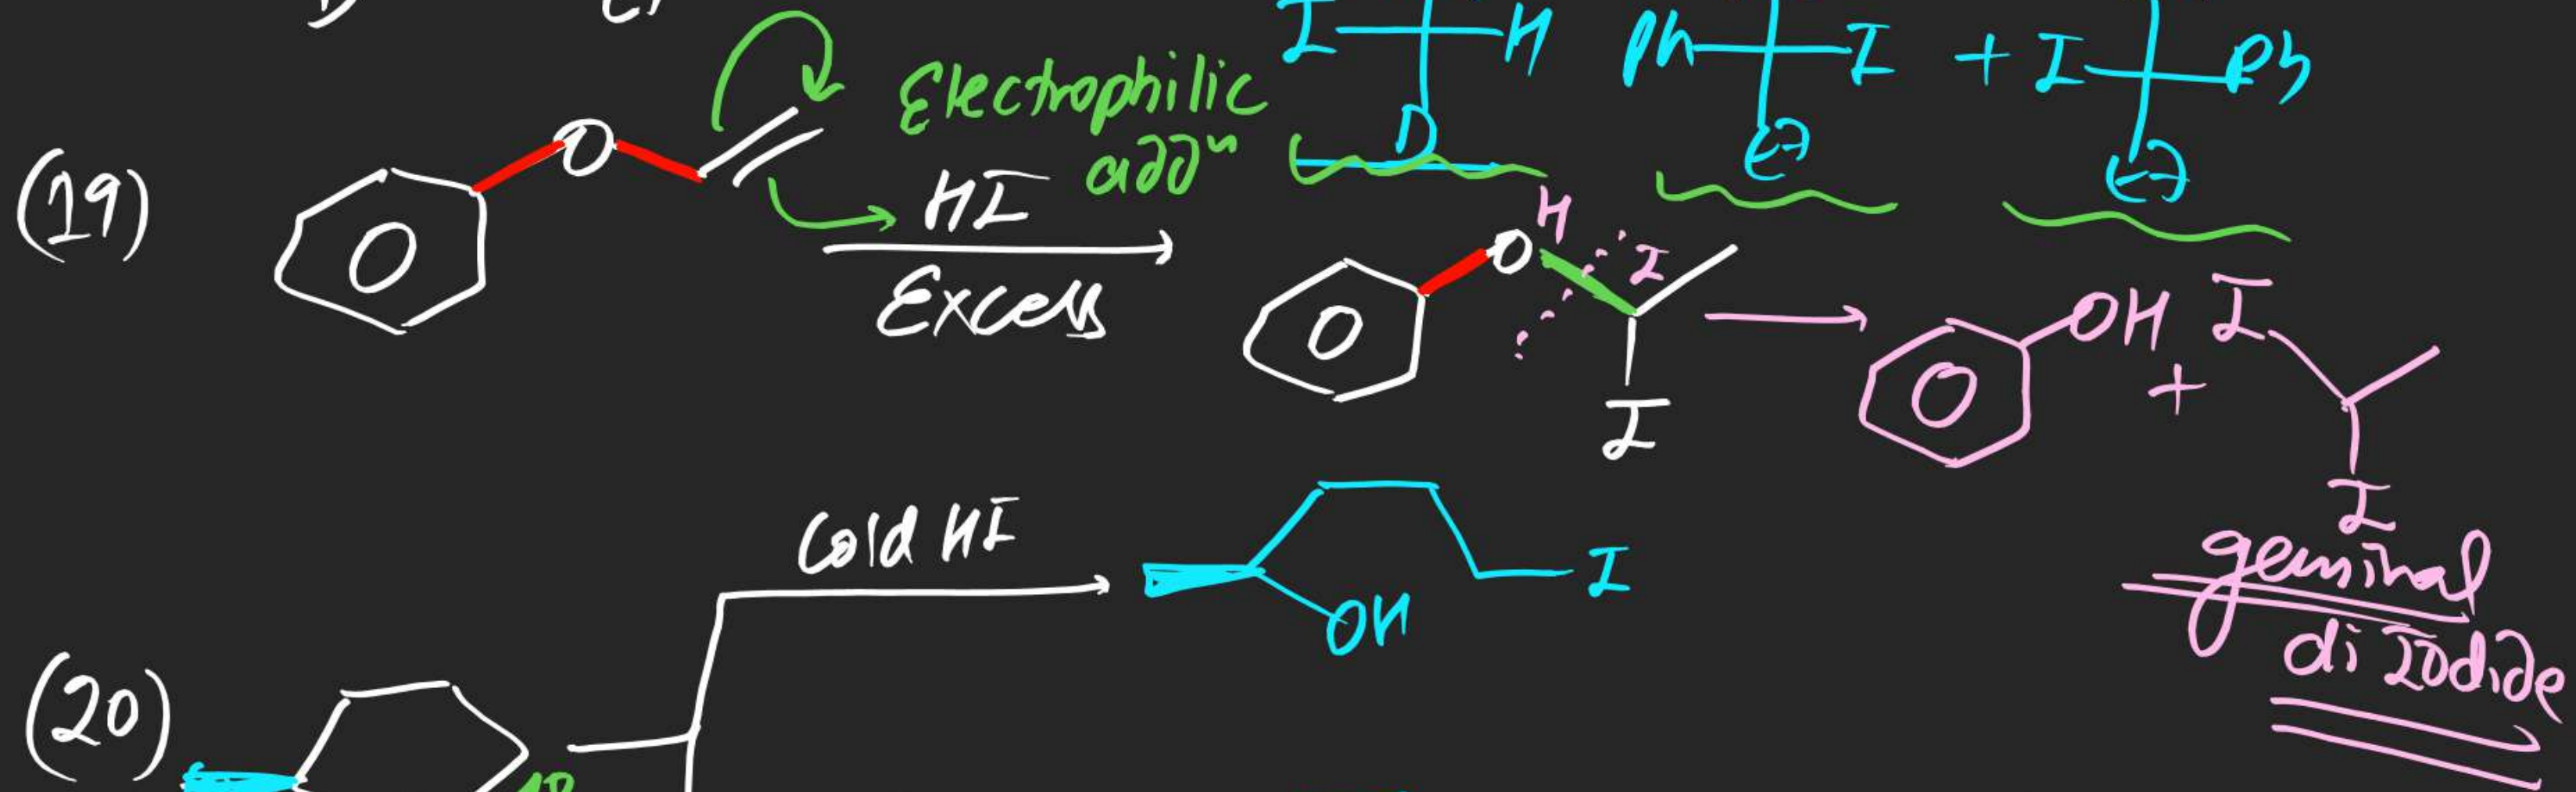 I H Ph I + I Ph
D Et Et
(19) O Electrophilic addⁿ
HI
Excess
O H I
I
OH + I
I
geminal
di Iodide
Cold HI
I
OH
(20)
1°